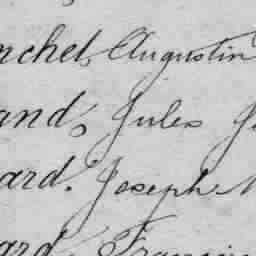 nchet, Augustin
and, Jules
ard. Joseph
ard,